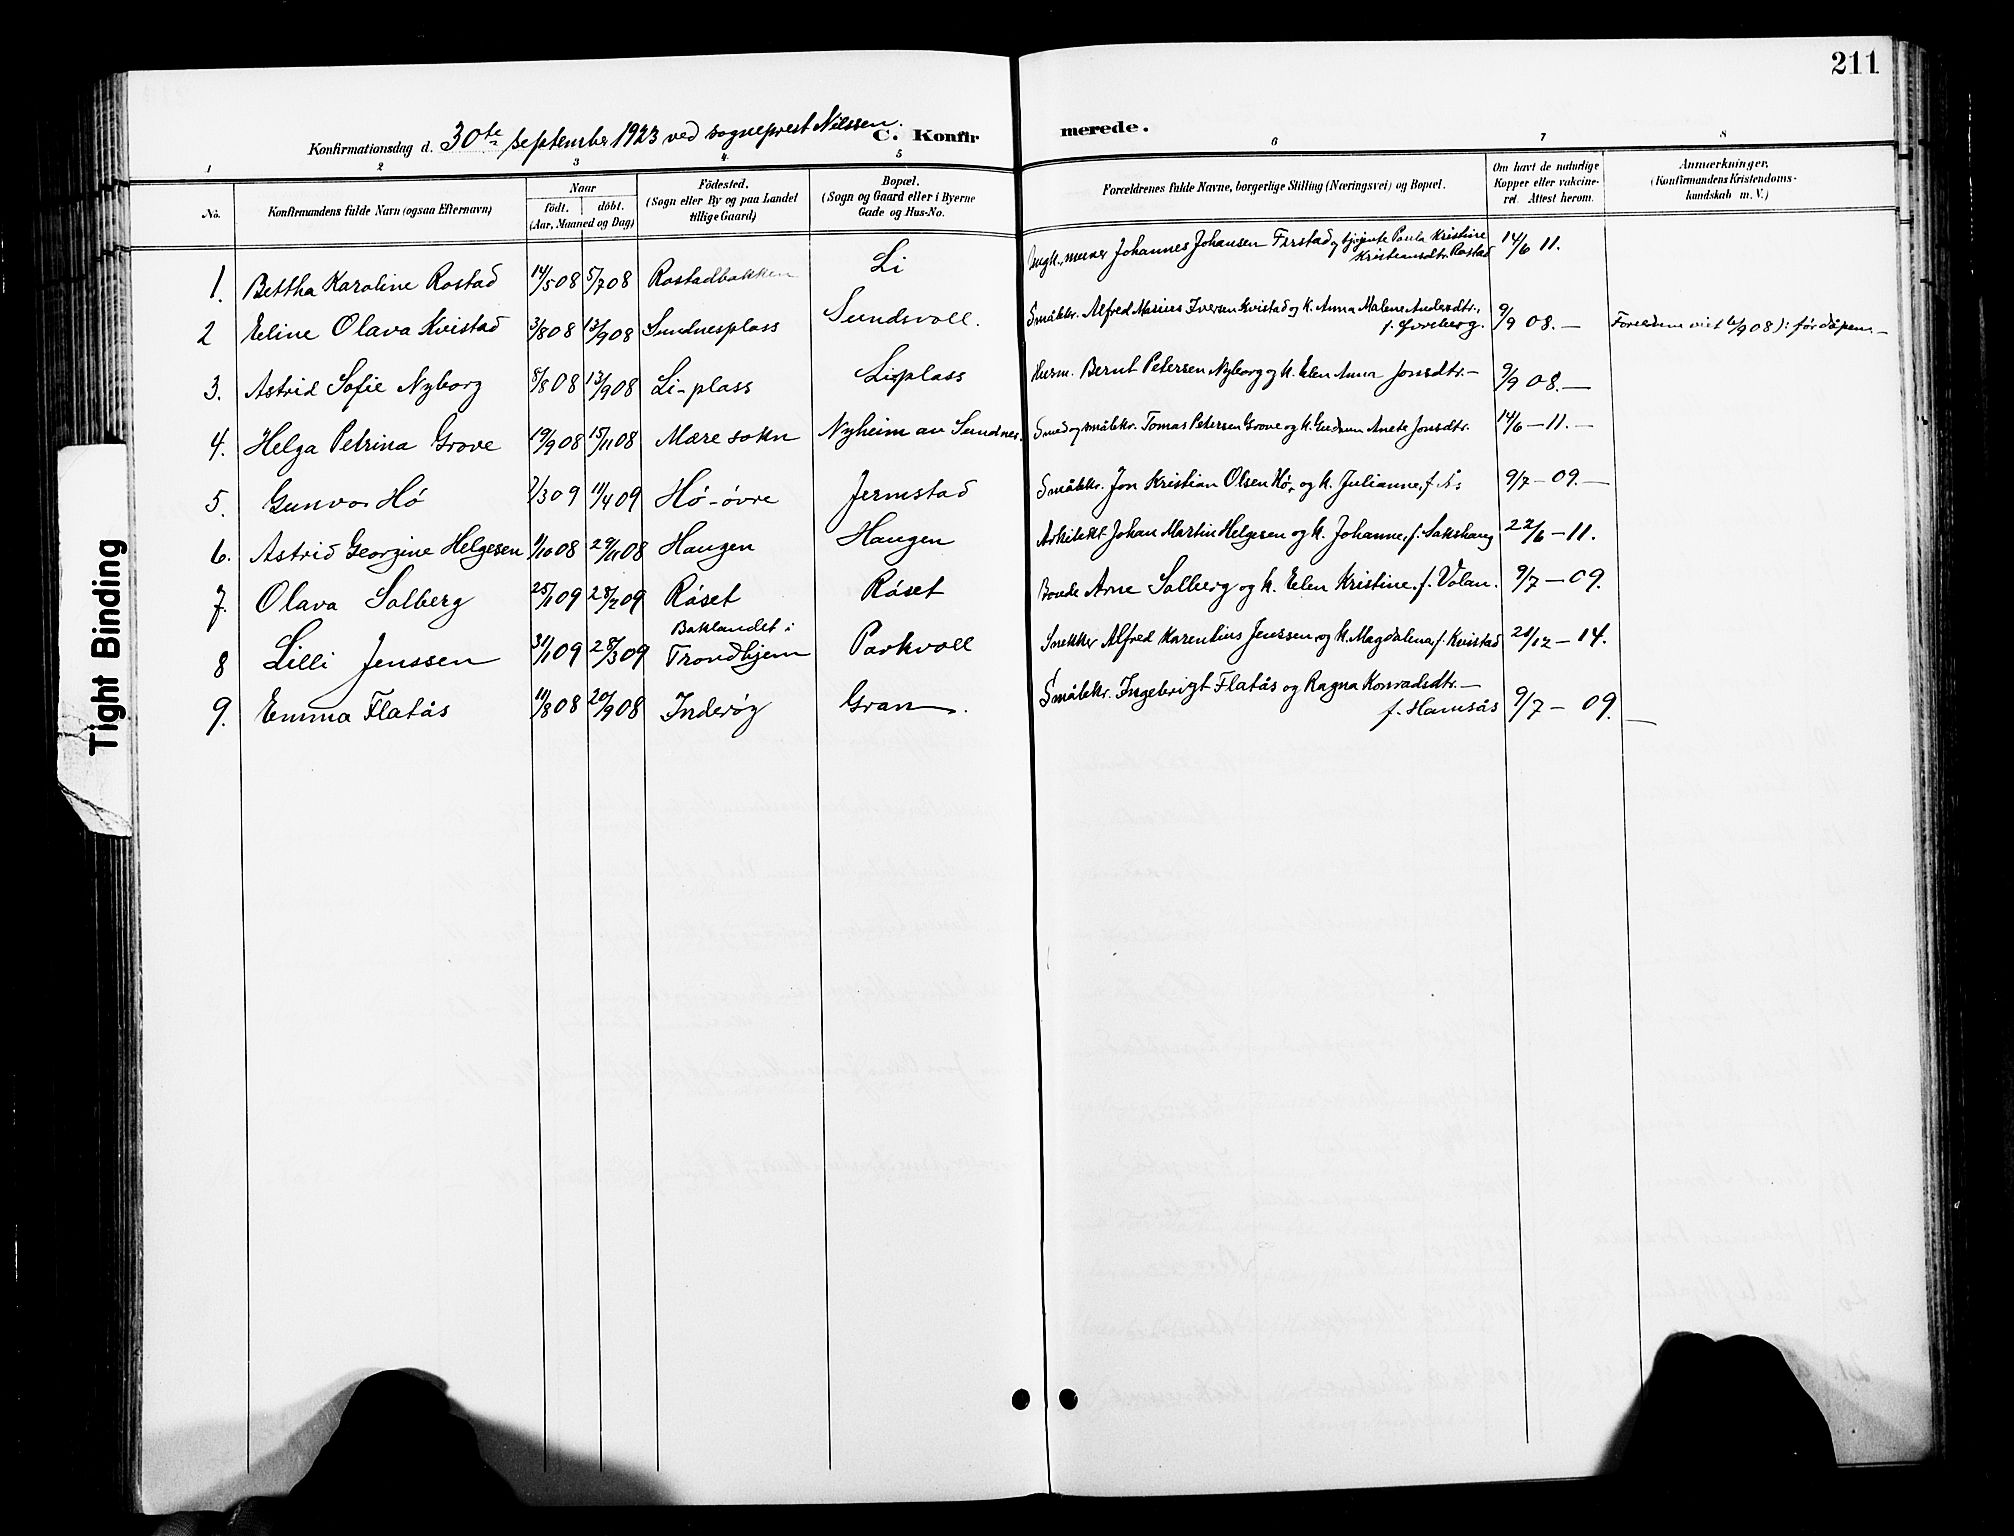 211
Konfirmationsdag d. 30te september 1923 ved sogneprest Nilssen.
C. Konfirmerede.
1 2 3 4 5 6 7 8
No.
Konfirmandens fulde Navn (ogsaa Efternavn)
Naar
født. døbt.
(Aar, Maaned og Dag)
Fødested.
(Sogn eller By og paa Landet
tillige Gaard)
Bopæl.
(Sogn og Gaard eller i Byerne
Gade og Hus-No.
Forældrenes fulde Navne, borgerlige Stilling (Næringsvei) og Bopæl.
Om havt de naturlige
Kopper eller vakcine-
ret. Attest herom.
Anmærkninger,
(Konfirmandens Kristendoms-
kundskab m. V.)
1. Bertha Karoline Rostad 14/5 08 5/7 08 Rostadbakken Li Ungk., murer Johannes Johansen Ferstad og tjenjente Paula Kristine Kristiansdtr. Rostad 14/6 11.
2 Eline Olava Kvistad 3/8 08 13/9 08 Sundnesplass Sundsvoll. Småbkr. Alfred Marius Iversen Kvistad og k. Anna Malene Andersdtr., f. 9/9 08. — Foreldrene viet 6/9 08 ): før dåpen. —
3. Astrid Sofie Nyborg 8/8 08 13/9 08 Li-plass Li-plass Husm. Bernt Petersen Nyborg og k. Elen Anna Jonsdtr. — 9/9 08. —
4. Helga Petrina Grove 19/9 08 15/11 08 Mære sokn Nyheim av Sundnes. Smed og småbkr. Tomas Petersen Grove og k. Gudrun Anete Jonsdtr. 14/6 — 11. —
5. Gunvor Hø 7/3 09 11/4 09 Hø-øvre Jermstad Småbkr. Jon Kristian Olsen Hø, og k. Julianne, f. Ås 9/7 — 09. —
6. Astrid Georgine Helgesen 9/10 08 29/11 08 Haugen Haugen Arkitekt Johan Martin Helgesen og k. Johanne, f. Sakshaug 22/6 — 11.
7. Olava Solberg 25/1 09 28/2 09 Røset Røset Bonde Arne Solberg og k. Elen Kristine, f. Volan. 9/7 — 09.
8 Lilli Jenssen 31/1 09 28/3 09 Baklandet i Trondhjem Parkvoll Snekker Alfred Karentius Jenssen, og k. Magdalena, f. Kvistad 21/12 — 14.
9. Emma Flatås 11/8 08 20/9 08 Inderøy Gran. Småbkr. Ingebrigt Flatås og Ragna Konradsdtr. — f. Hamsås 9/7 — 09. —
Tight Binding